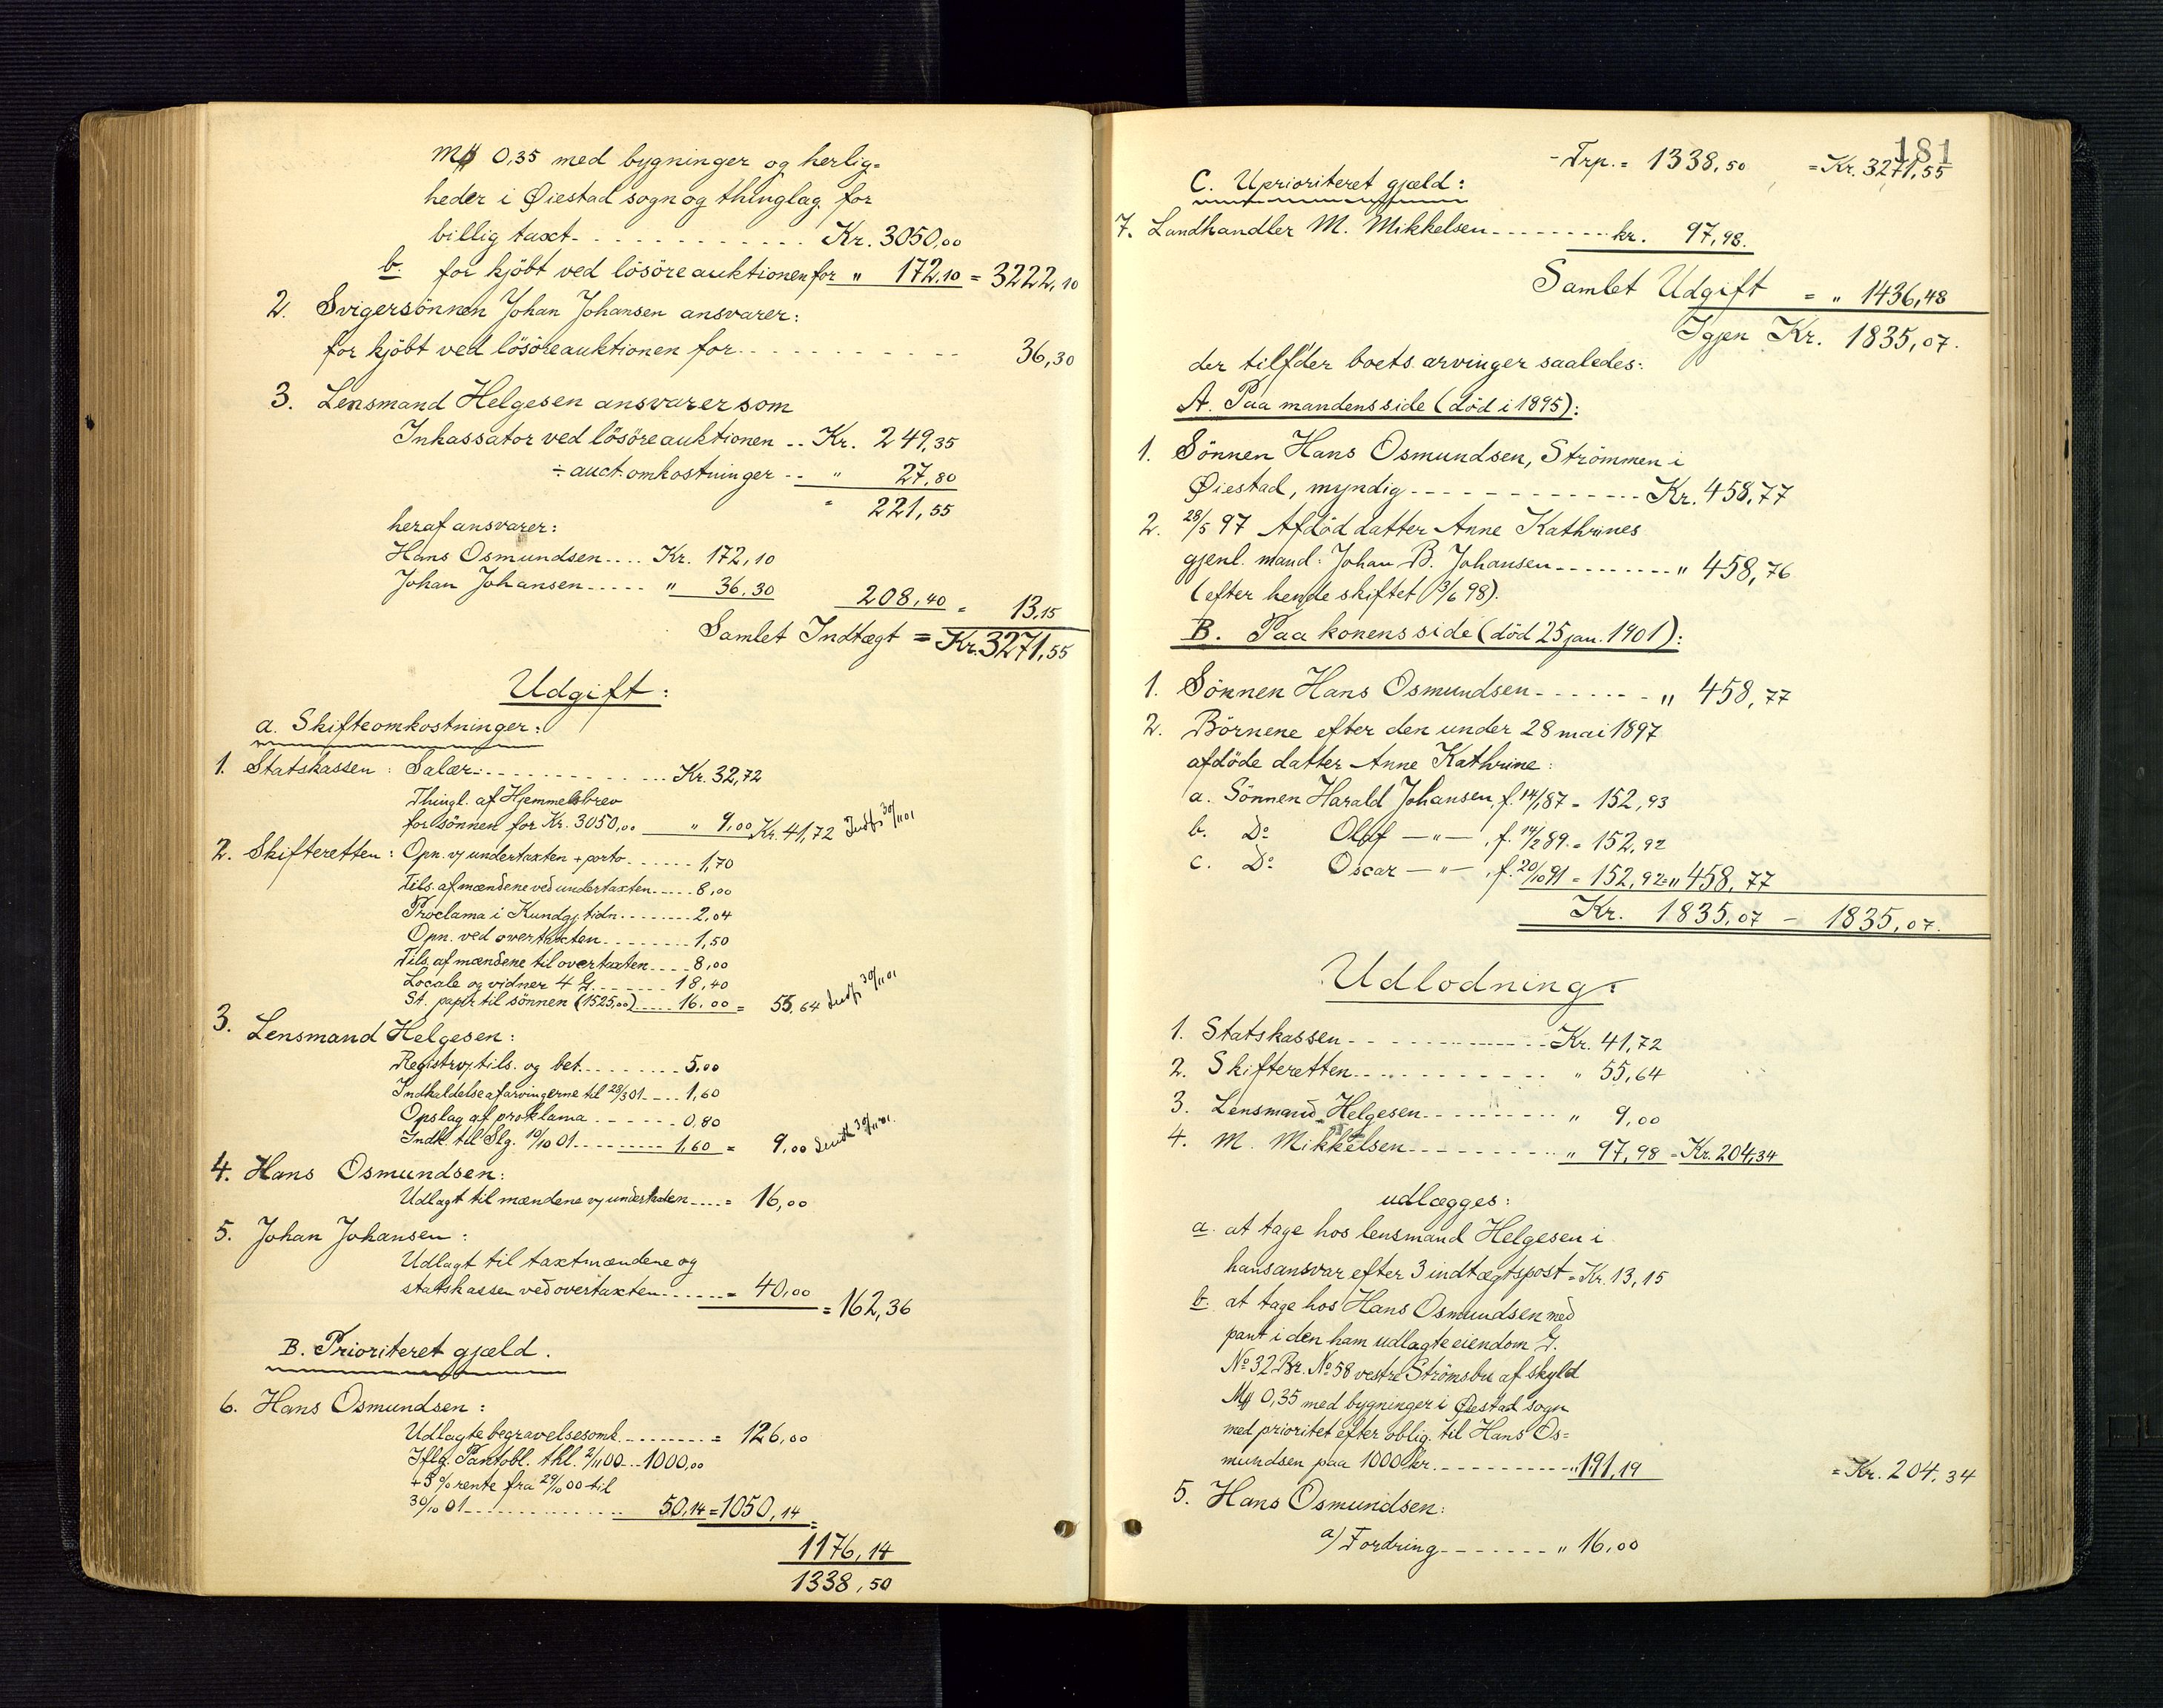 0,35 med bygninger og herlig=
heder i Øiestad sogn og thinglag for
billig taxt Kr. 3050,00
b. for kjöbt ved lösöreauktionen for " 172,10 = 3222,10
2. Svigersönnen Johan Johansen ansvarer:
for kjöbt ved lösöreauktionen for 36,30
3. Lensmand Helgesen ansvarer som
Inkassator ved lösöreauktionen .. Kr. 249,35
÷ auct. omkostninger -- " 27,80
" 221,55
heraf ansvarer:
Hans Osmundsen.... Kr. 172,10
Johan Johansen..... " 36,30 208,40 = 13,15
Samlet Indtægt = Kr. 3271,55
Udgift:
a. Skifteomkostninger:
1. Statskassen: Salær Kr. 32,72
Thingl. af Hjemmelsbrev
for sönnen for Kr. 3050,00 " 9,00 Kr. 41,72 30/11 01
2. Skifteretten: Opn. v/ undertaxten + porto 1,70
Tils. af mændene ved undertaxten 8,00
Proclama i Kundgj. tidn. 2,04
Opn. ved overtaxten 1,50
Tils. af mændene til overtaxten 8,00
Locale og vidner 4 G. 18,40
St. papir til sönnen (1525,00) 16,00 = 55,64 30/11 01
3. Lensmand Helgesen:
Registr. v/ tils. og bet. 5,00
Indkaldelse af arvingerne til 28/3 01 1,60
Opslag af proklama 0,80
Indk. til Slg. 10/10 01 1,60 = 9,00 30/11 01.
4. Hans Osmundsen:
Udlagt til mændene v/ undertaxten = 16,00
5. Johan Johansen:
Udlagt til taxtmændene og
statskassen ved overtaxten = 40,00 = 162,36
B. Prioriteret gjæld.
6. Hans Osmundsen:
Udlagte begravelsesomk. = 126,00
Iflg. Pantobl. thl. 2/11 00 1000,00
+ 5 % rente fra 29/10 00 til
30/10 01 50,14 = 1050,14 =
1176,14
1338,50
181
- Trp. = 1338,50 = Kr. 3271,55
C. Uprioriteret gjæld:
7. Landhandler M. Mikkelsen kr. 97,98.
Samlet Udgift = " 1436,48
Igjen Kr. 1835,07.
der tilf'der boets arvinger saaledes:
A. Paa mandens side (död i 1895):
1. Sönnen Hans Osmundsen, Strömmen i
Øiestad, myndig Kr. 458,77
2. 28/5 97 Afdöd datter Anne Kathrines
gjenl. mand: Johan B. Johansen " 458,76
(efter hende skiftet 3/6 98).
B. Paa konens side (död 25 jan. 1901):
1. Sönnen Hans Osmundsen " 458,77
2. Börnene efter den under 28 mai 1897
afdöde datter Anne Kathrine:
a. Sönnen Harald Johansen, f. 14/1 87 = 152,93
b. Do Olaf — " — , f. 14/2 89 = 152,92
c. Do Oscar — " — , f. 20/10 91 = 152,92 = " 458,77
Kr. 1835,07 - 1835,07.
Udlodning:
1. Statskassen Kr. 41,72
2. Skifteretten " 55,64
3. Lensmand Helgesen " 9,00
4. M. Mikkelsen " 97,98 = Kr. 204,34
udlægges:
a. at tage hos lensmand Helgesen i
hans ansvar efter 3 indtægtspost = Kr. 13,15
b. at tage hos Hans Osmundsen med
pant i den ham udlagte eiendom G.
No 32 Br. No 58 vestre Strömsbu af skyld
0,35 med bygninger i Øiestad sogn
med prioritet efter oblig. til Hans Os=
mundsen paa 1000 kr. " 191,19 = Kr. 204,34
5. Hans Osmundsen:
a) Fordring " 16,00